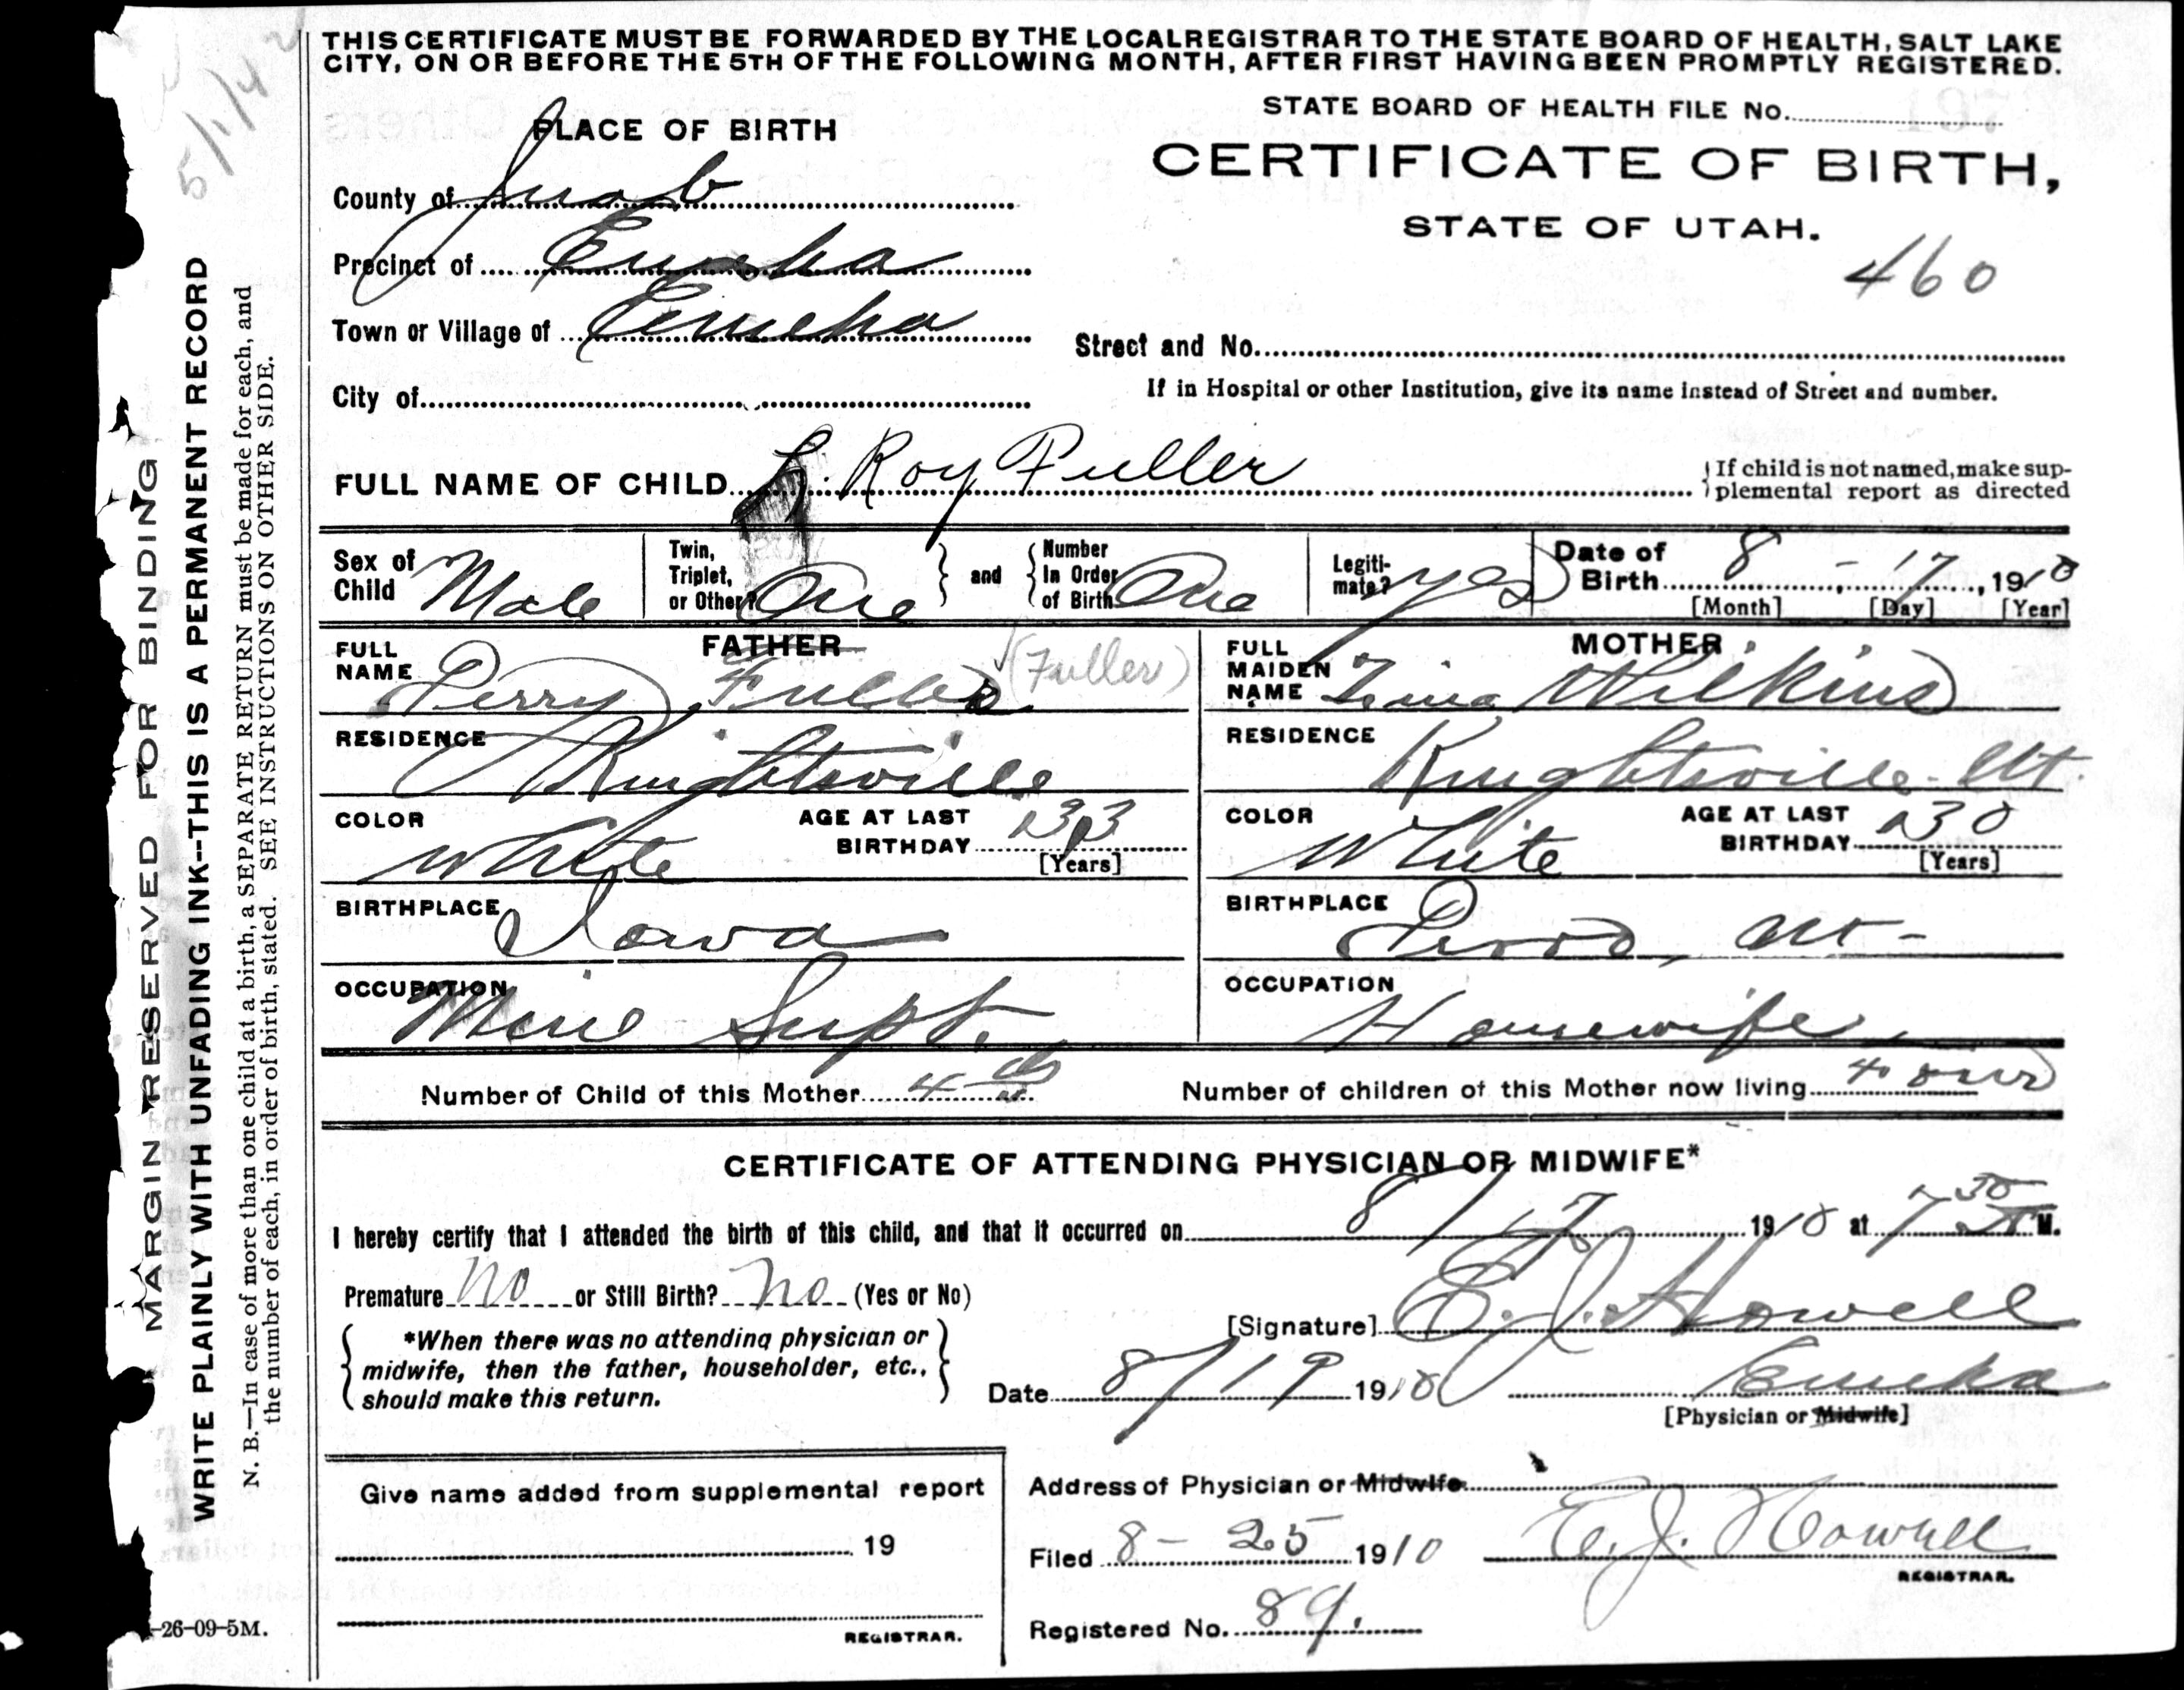 THIS CERTIFICATE MUST BE FORWARDED BY THE LOCAL REGISTRAR TO THE STATE BOARD OF HEALTH, SALT LAKE
CITY, ON OR BEFORE THE 5TH OF THE FOLLOWING MONTH, AFTER FIRST HAVING BEEN PROMPTLY REGISTERED.
5/1/14
MARGIN RESERVED FOR BINDING
WRITE PLAINLY WITH UNFADING INK--THIS IS A PERMANENT RECORD
N. B.—In case of more than one child at a birth, a SEPARATE RETURN must be made for each, and
the number of each, in order of birth, stated. SEE INSTRUCTIONS ON OTHER SIDE.
-26-09-5M.
PLACE OF BIRTH
STATE BOARD OF HEALTH FILE No.
CERTIFICATE OF BIRTH,
STATE OF UTAH.
460
County of Juab
Precinct of Eureka
Town or Village of Eureka
Street and No.
City of
If in Hospital or other Institution, give its name instead of Street and number.
FULL NAME OF CHILD L. Roy Fuller
If child is not named, make sup-
plemental report as directed
Sex of Child Male
Twin, Triplet, or Other? One
and
Number In Order of Birth One
Legiti-mate? yes
Date of Birth 8 - 17, 1910
[Month] [Day] [Year]
FATHER
FULL NAME Perry Fuller (Fuller)
MOTHER
FULL MAIDEN NAME Zina Wilkins
RESIDENCE Knightsville
RESIDENCE Knightsville Ut.
COLOR White
AGE AT LAST BIRTHDAY 33 [Years]
COLOR White
AGE AT LAST BIRTHDAY 30 [Years]
BIRTHPLACE Iowa
BIRTHPLACE Provo, Ut-
OCCUPATION Mine Supt.
OCCUPATION Housewife
Number of Child of this Mother 4th
Number of children of this Mother now living Four
CERTIFICATE OF ATTENDING PHYSICIAN OR MIDWIFE*
I hereby certify that I attended the birth of this child, and that it occurred on 8/17 1910 at 7 30 M.
Premature no or Still Birth? no (Yes or No)
*When there was no attending physician or
midwife, then the father, householder, etc.,
should make this return.
[Signature] E. J. Howell
Date 8/19 1910 Eureka
[Physician or Midwife]
Give name added from supplemental report
19
REGISTRAR.
Address of Physician or Midwife
Filed 8 - 25 1910 E. J. Howell
REGISTRAR.
Registered No. 89.